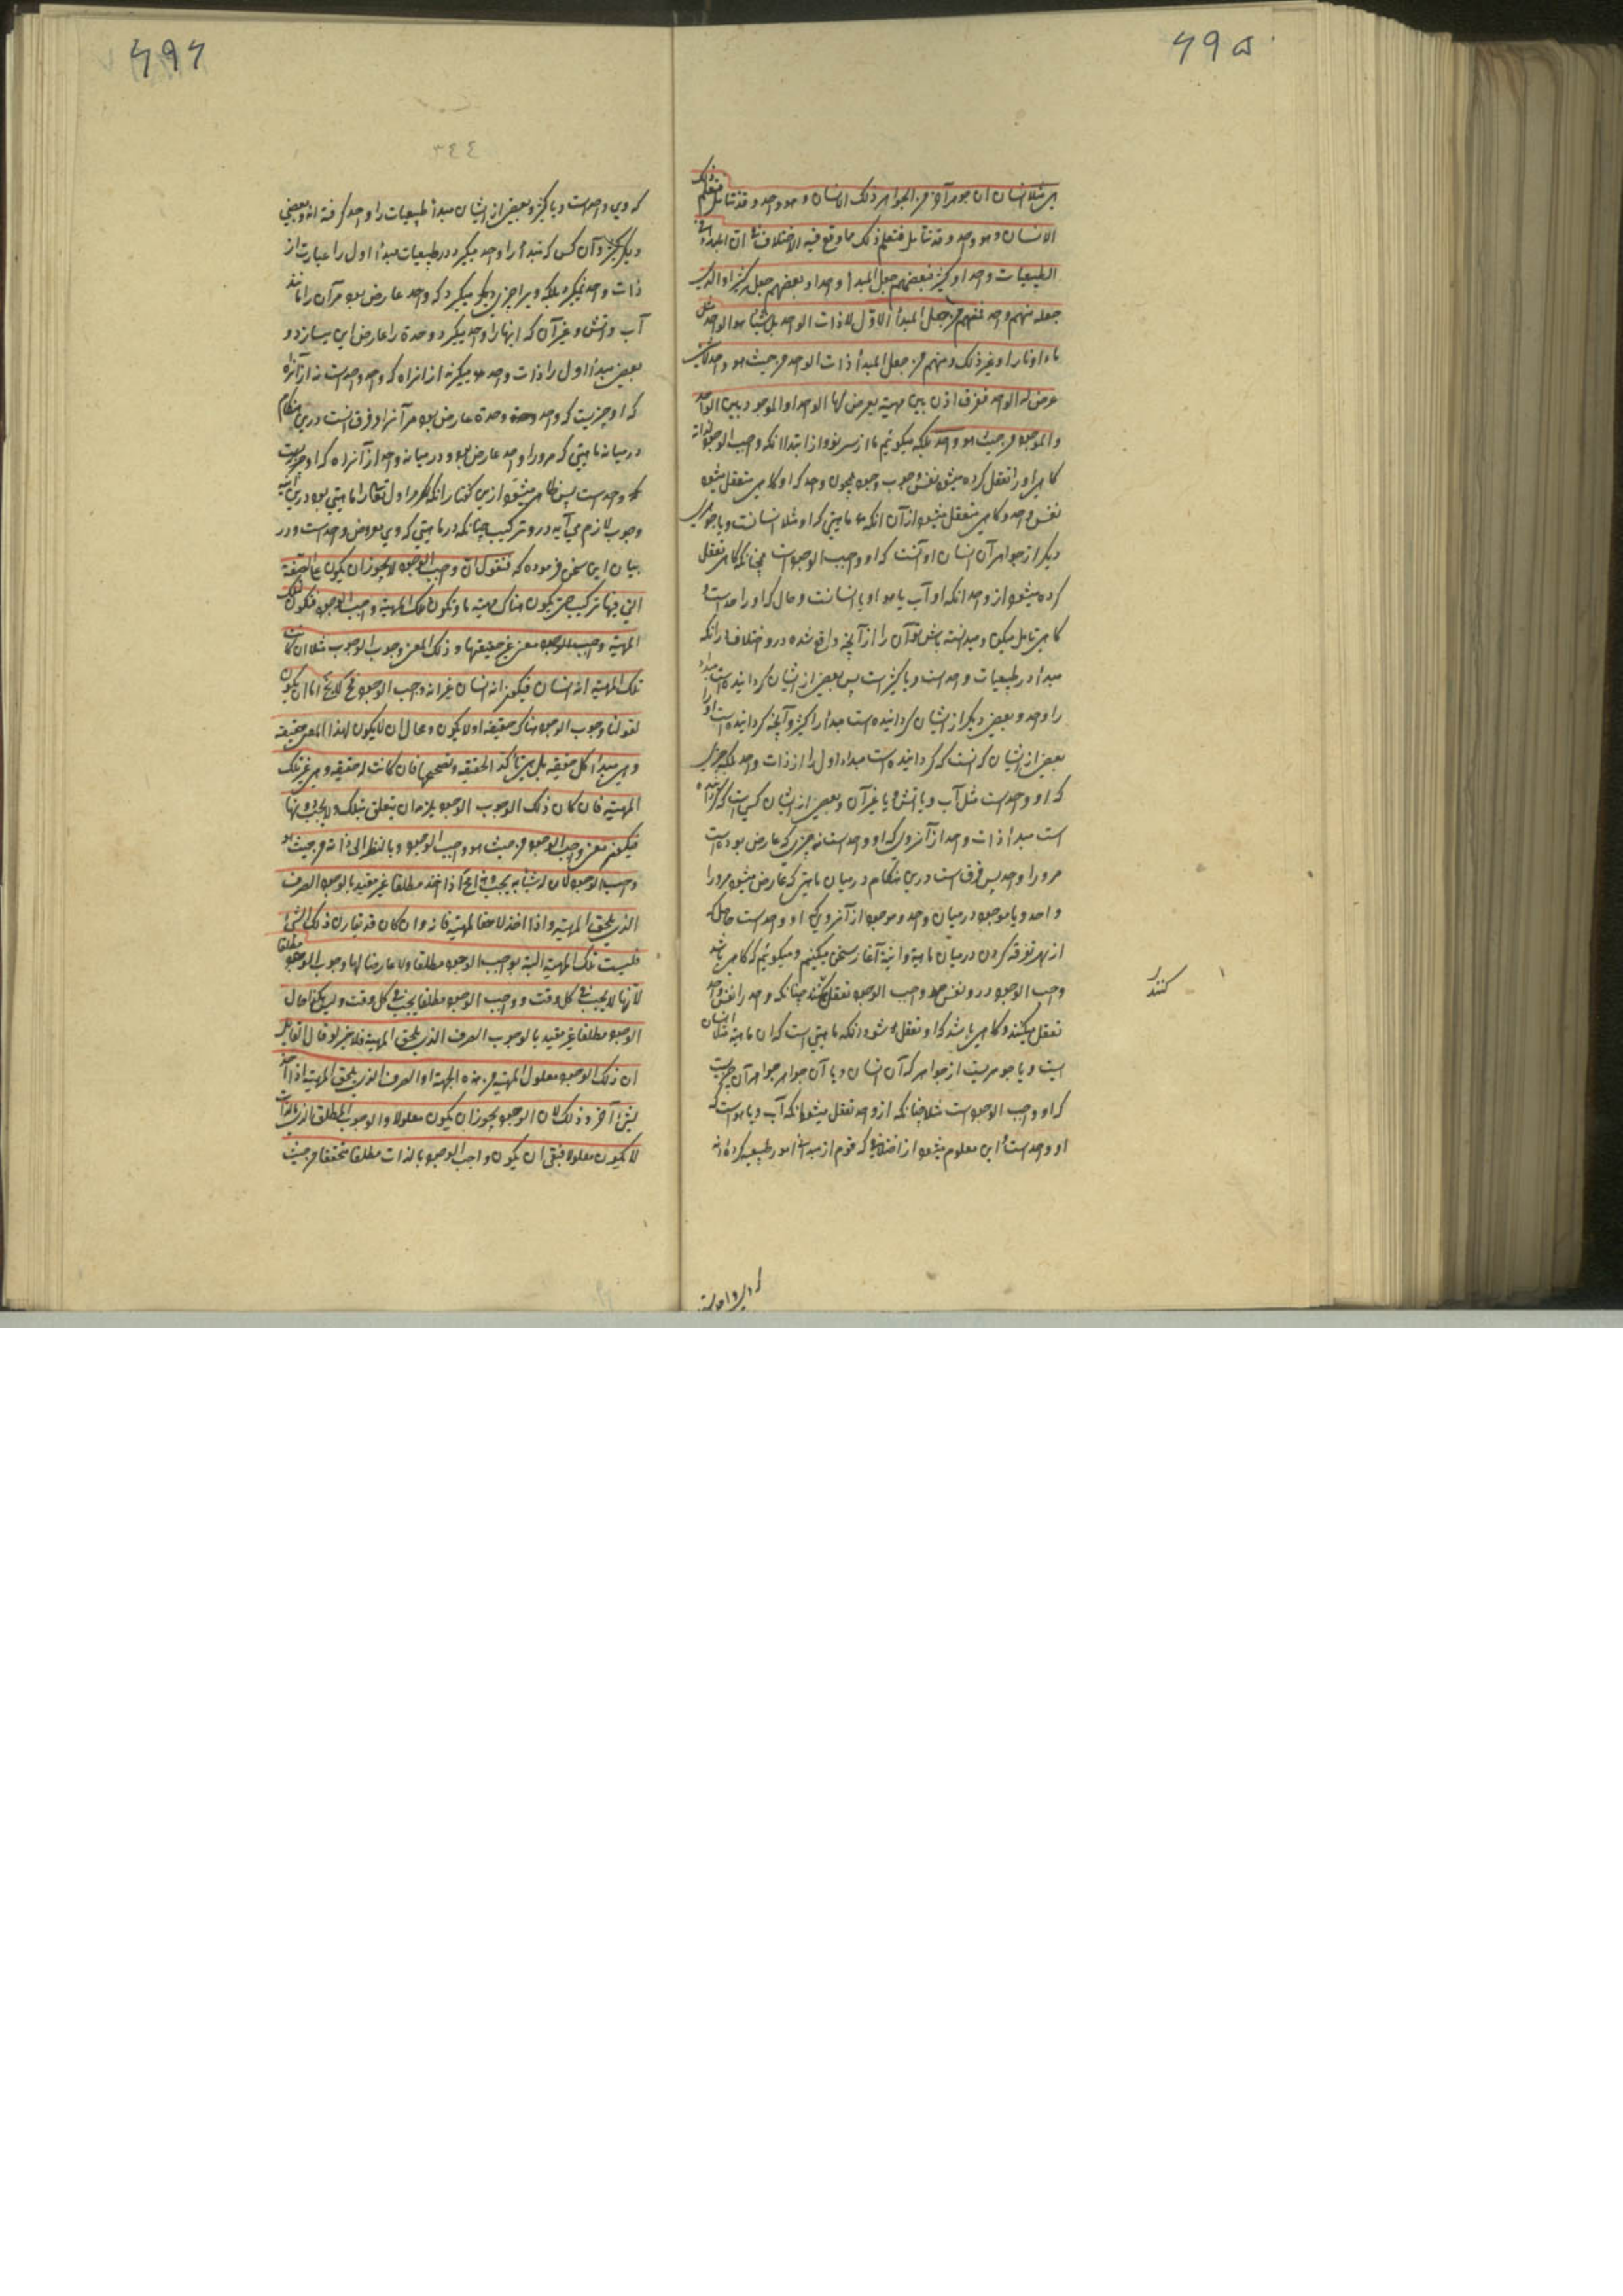 ۶۹۵
هی مثلا انسان او جوهر آخر من الجواهر ذلک الانسان و هو واحد و قد یتأمل فیعلم ذلک
الانسان و هو واحد و قد یتأمل فتعلم ذلک مما وقع فیه الاختلاف فی ان المبدأ فی
الطبیعیات واحد او کثیر فبعضهم جعل المبدأ واحدا و بعضهم جعل کثیرا و الذین
جعله منهم واحدا فمنهم من جعل المبدأ الاوّل لا ذات الواحد بل شیئا هو الواحد مثل
ماء او نار او غیر ذلک و منهم من جعل المبدأ ذات الواحد من حیث هو واحد لا شیء
عرض له الواحد ففرق اذن بین مهیة یعرض لها الواحد او الموجود و بین الواحد
و الموجود من حیث هو واحد بلکه میگوئیم ما از سر نو و از ابتدا انکه واجب الوجود لذاته
گاهی او را تعقل کرده میشود نفس وجوب وجود همچون واحد که او گاهی متعقل میشود
نفس واحد و گاهی متعقل میشود از آن انکه ماهیتی که او مثلا انسانست و یا جوهری
دیگر از جواهر آن انسان او آنست که او واجب الوجود است همچنانکه گاهی تعقل
کرده میشود از واحد انکه او آب یا هوا و یا انسانست و حال که او واحد است و
گاهی تأمل میکن و میدانسته باش تو آن را از آنچه واقع شده در او اختلاف از آنکه
مبدأ در طبیعیات واحد است و یا کثیر است پس بعضی از ایشان گردانیده است مبدأ
را واحد و بعضی دیگر از ایشان گردانیده است مبدأ را کثیر و آنچه گردانیده است او را
بعضی از ایشان کسانست که گردانیده است مبدأ اول را از ذات واحد بلکه چیزی
که او واحد است مثل آب و یا آتش و یا غیر آن و بعضی از ایشان کسی است که گردانیده
است مبدأ ذات واحد از آنروی که او واحد است نه چیزی که عارض بوده است
مر او را واحد پس فرق است درین هنگام در میان ماهیتی که عارض میشود مر او را
واحد و یا موجود در میان واحد و موجود از آنروی که او واحد است حاصل که
از بهر تفرقه کردن در میان ماهیة و انیة آغاز سخن میکنیم و میگوئیم که گاهی باشد
واجب الوجود در و نفس واجب الوجود تعقل کنند چنانکه واحد را نفس واحد
تعقل میکنند و گاهی باشد که او تعقل شود انکه ماهیتی است که ان ماهیة مثلا انسان
است و یا جوهریست از جواهر که آن انسان و یا آن جواهر جواهر آن چیزیست
که او واجب الوجود است مثلا چنانکه از واحد تعقل میشود انکه آب و یا هواست که
او واحد است و این معلوم میشود از اختلافی که قوم از مبدأ امور طبیعیه کرده اند
کنند
۶۹۶
٣٤٤
که وی واحد است و یا کثیر و بعضی از ایشان مبدأ طبیعیات را واحد گرفته اند و بعضی
دیگر کثیر و آن کس که مبدأ را واحد میگیرد در طبیعیات مبدأ اول را عبارت از
ذات واحد نمیگیرد بلکه ویرا چیزی دیگر میگیرد که واحد عارض بود مر آن را مانند
آب و آتش و غیر آن که اینها را واحد میگیرد و وحدة را عارض این میسازد و
بعضی مبدأ اول را ذات واحد هو میگیرند از انراه که واحد واحد است نه از آنراه
که او چیزیست که واحد و وحدة عارض بود مر آنرا و فرق است درین هنگام
در میانه ماهیتی که مر او را واحد عارض بود و در میانه واحد از آنراه که او موجودست
و واحد است پس ظاهر میشود ازین گفتار انکه اگر مر اول تعالی را ماهیتی بود درین اثنیه
وجوب لازم می آید در و ترکیب چنانکه در ماهیتی که وی معروض واحد است و در
بیان این سخن فرموده که فنقول ان واجب الوجود لا یجوز ان یکون علی الصفة
التی فیها ترکیب حتی یکون هناک مهیة ما و تکون تلک المهیة واجب الوجود فیکون لتلک
المهیة واجب الوجود معنی غیر حقیقتها و ذلک المعنی وجوب الوجوب مثلا ان کانت
تلک المهیة انه انسان فیکون انه انسان غیر انه واجب الوجود فح لا یخ اما ان یکون
لقولنا وجوب الوجود هناک حقیقة او لا یکون و محال ان لا یکون لهذا المعنی حقیقة
و هی مبدأ کل حقیقة بل هی تأکد الحقیقة و تصححها فان کانت له حقیقة و هی غیر تلک
المهیة فان کان ذلک الوجوب الوجود یلزمه ان یتعلق بتلک و لا یجب دونها
فیکون معنی واجب الوجود من حیث هو واجب الوجود و بالنظر الی ذاته من حیث هو
واجب الوجود لان له شیئا به یجب و فی اخ اذا اخذ مطلقا غیر مقید بالوجود الصرف
الذی یلحق المهیة و اذا اخذ لاحقا لمهیة فانه و ان کان قد یقارن ذلک الشیء
فلیست تلک المهیة البتة بواجب الوجود مطلقا و لا عارضا لها وجوب الوجود مطلقا
لانها لا یجب فی کل وقت و واجب الوجود مطلقا یجب فی کل وقت و لیس هکذا حال
الوجود مطلقا غیر مقید بالوجوب الصرف الذی یلحق المهیة فلا خیر لو قال القائل
ان ذلک الوجود معلول المهیة من هذه الجهة او الصرف الذی یلحق المهیة اذا اخذ
لشیء آخر و ذلک لان الوجود یجوز ان یکون معلولا و الوجوب المطلق الذی بالذات
لا یکون معلولا فبقی ان یکون واجب الوجود بالذات مطلقا متحققا من حیث